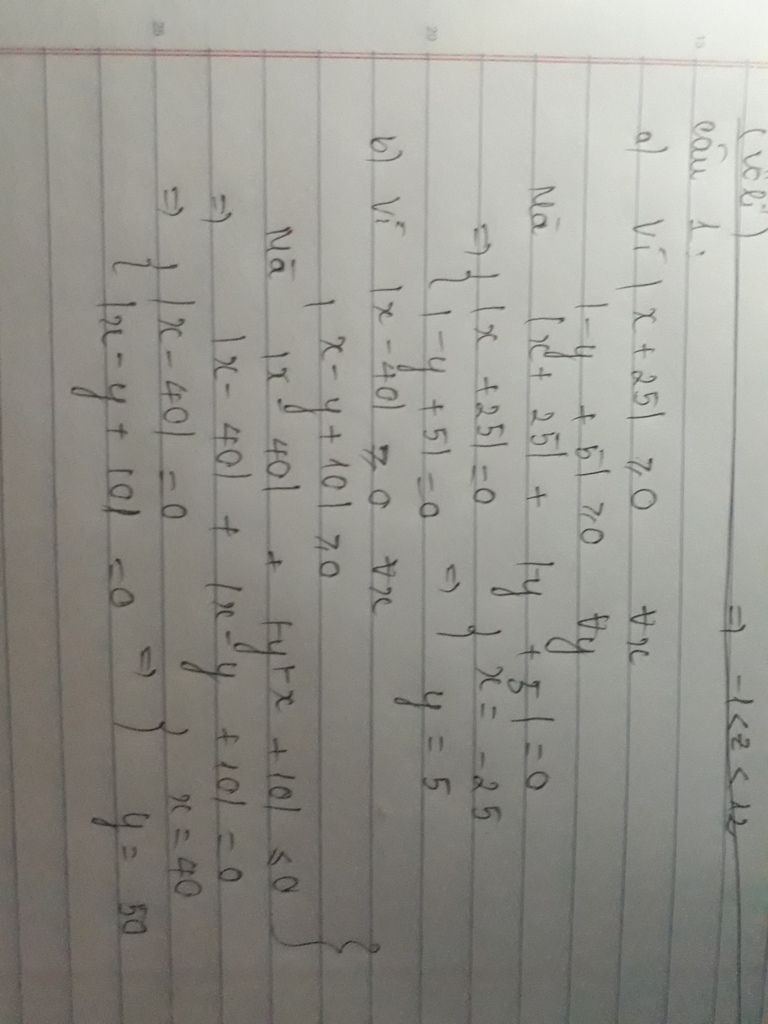 (vô lí) => -1 < z < 12
Câu 1:
a) Vì |x + 25| ≥ 0 ∀x
|-y + 5| ≥ 0 ∀y
Mà |x + 25| + |-y + 5| = 0
=> { |x + 25| = 0 { x = -25
{ |-y + 5| = 0 => y = 5
b) Vì |x - 40| ≥ 0 ∀x
|x - y + 10| ≥ 0
Mà |x - 40| + |-y + x + 10| ≤ 0
=> |x - 40| + |x - y + 10| = 0
=> { |x - 40| = 0 { x = 40
{ |x - y + 10| = 0 => y = 50
15
20
25